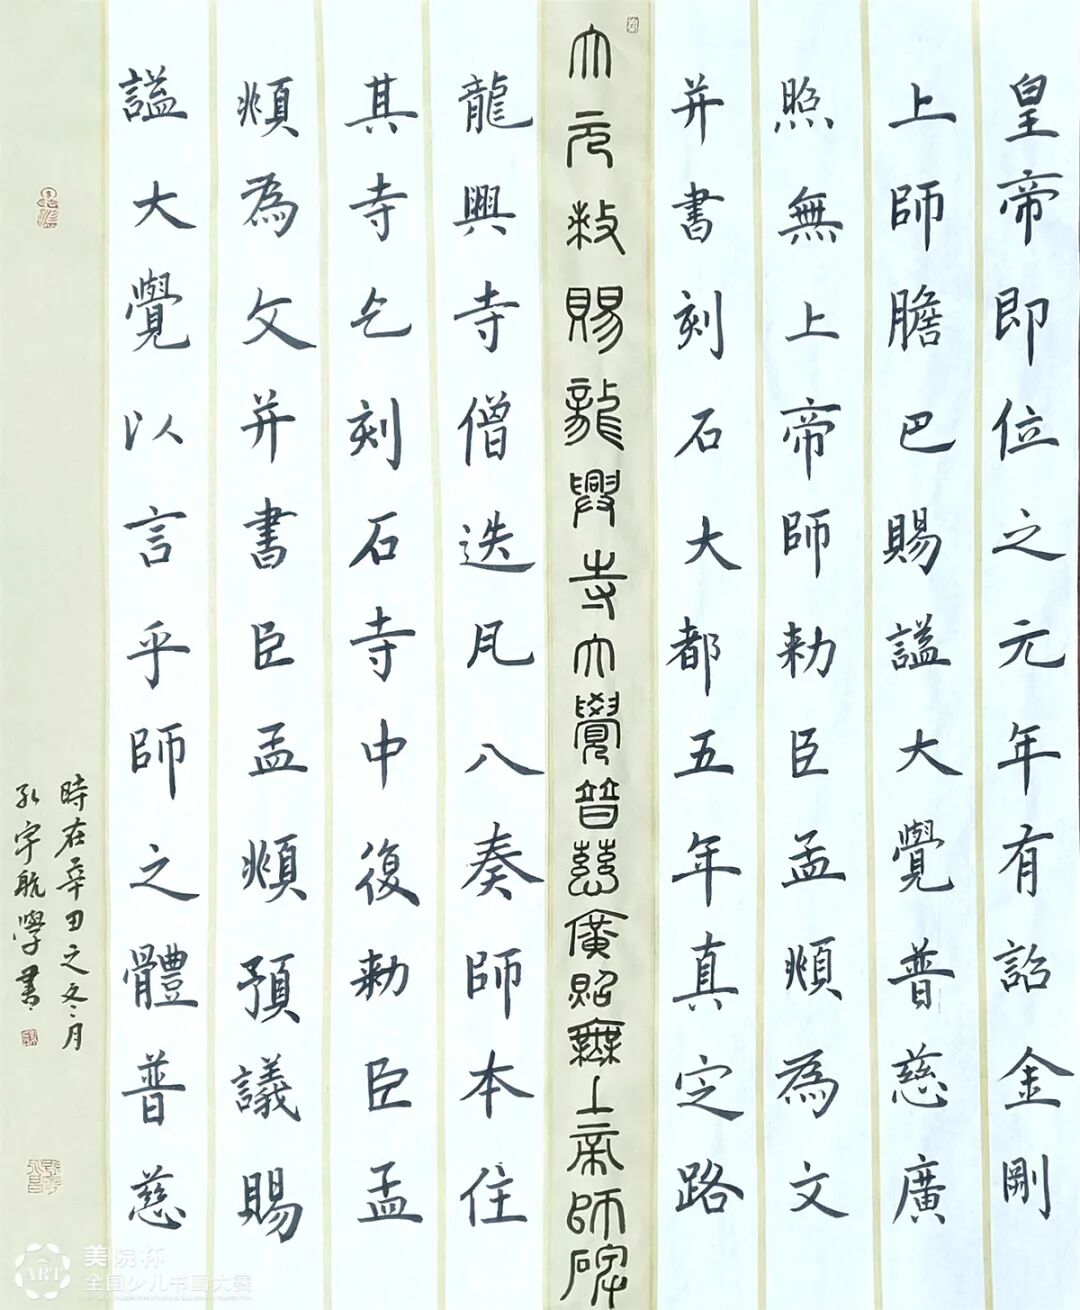 皇帝即位之元年有詔金剛
上師膽巴賜謚大覺普慈廣
照無上帝師勅臣孟頫為文
并書刻石大都五年真定路
大元敕賜龍興寺大覺普慈廣照無上帝師碑
龍興寺僧迭凡八奏師本住
其寺乞刻石寺中復勅臣孟
頫為文并書臣孟頫預議賜
謚大覺以言乎師之體普慈
時在辛丑之冬月
孔宇航學書
ART
美院杯
全国少儿书画大赛